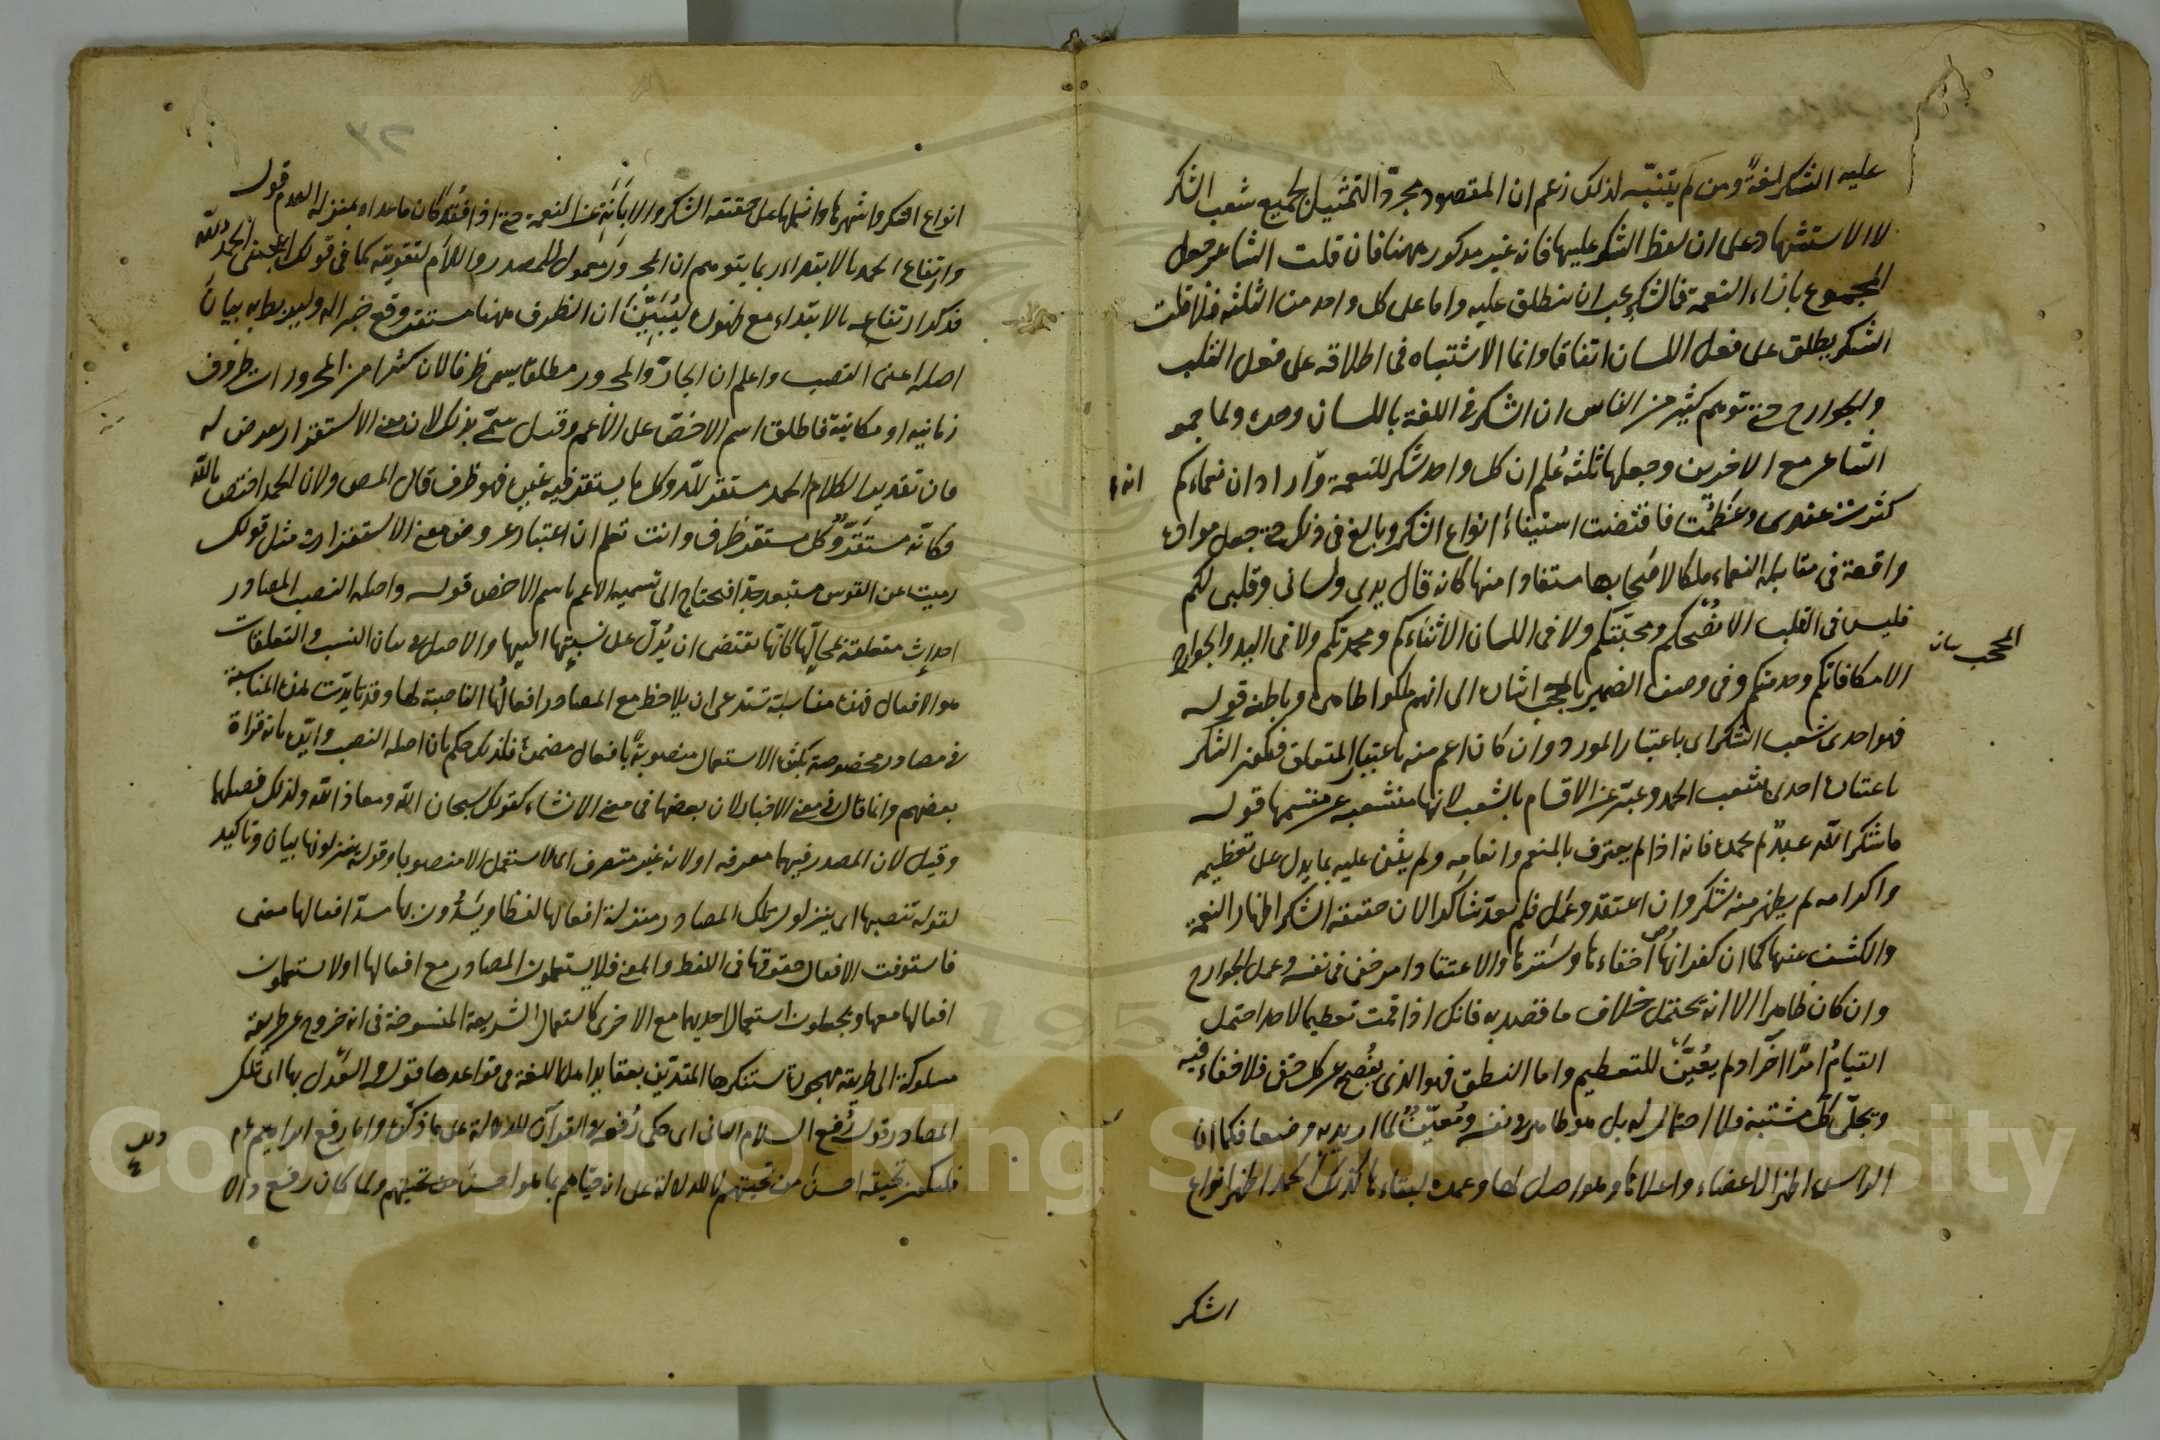 عليه الشكر لغةً ومن لم يتنبّه لذلك زعم ان المقصود مجرّد التمثيل لجميع شعب الشكر
لا الاستشهاد على ان لفظ الشكر عليها فانه غير مذكور ههنا فان قلت الشاعر جعل
المجموع بازاء النعمة فالشكر يجب ان ينطلق عليه واما على كل واحد من الثلثة فلا قلت
الشكر يطلق على فعل اللسان اتفاقا وانما الاشتباه فى اطلاقه على فعل القلب
والجوارح حتى توهم كثير من الناس ان الشكر فى اللغة باللسان وحده ولما جمع
الشاعر مع الاخرين وجعلها ثلثة عُلم ان كل واحد شكر للنعمة وأراد ان نعماءكم
كثرت عندى وعَظُمت فاقتضت استيفاءَ انواع الشكر وبالغ فى ذلك حتى جعل موارده
واقعة فى مقابلة النعماء ملكا لاصحابها مستفادا منها كانه قال يدى ولسانى وقلبى لكم
فليس فى القلب الا نُصْحكم ومحبّتكم ولا فى اللسان الا ثناءكم ومحمدتكم ولا فى اليد والجوارح
الا مكافاتكم وخدمتكم وفى وصف الضمير بالمحجب اشارة الى انهم ملكوا ظاهره وباطنه قوله
فهو احدى شعب الشكر اى باعتبار المورد وان كان اعم منه باعتبار المتعلق فيكون الشكر
باعتباره احدى شعب الحمد وعبّر عن الاقسام بالشعب لانها منشعبة عن مقسمها قوله
ما شكر اللّٰه عبدٌ لم يحمده فانه اذا لم يعترف بالمنعم وانعامه ولم يثن عليه بما يدل على تعظيمه
واكرامه لم يظهر منه شكر وان اعتقد وعمل فلم يعدّ شاكرا لان حقيقة الشكر اظهار النعمة
والكشف عنها كما ان كفرانها اخفاءها وسَترها والاعتقاد امر خفى فى نفسه وعمل الجوارح
وان كان ظاهرا الا انه يحتمل خلاف ما قصد به فانك اذا قمت تعظيما لاحد احتمل
القيامُ امرًا آخرا ولم يتعيّن للتعظيم واما النطق فهو الذى يفصح عن كل خفى فلا خفاء فيه
ويجلّى كل مشتبه فلا احتمال له بل هو ظاهر فى نفسه ومُعيّنٌ لما اريد به وضعا فكما ان
الراس اظهر الاعضاء واعلاها وهو اصل لها وعمدة لبقاءها كذلك الحمد اظهر انواع
انه
المحجب بيان
الشكر
انواع الشكر واشهرها واشملها على حقيقة الشكر والابانة عن النعمة حتى اذا فُقِد كان ما عداه بمنزلة العدم قوله
وارتفاع الحمد بالابتداء ربما يتوهم ان المجرور معمول للمصدر واللام لتقويته كما فى قولك اعجبنى الحمد للّٰه
فذكر ارتفاعه بالابتداء مع ظهوره ليُبَيِّن ان الظرف ههنا مستقر وقع خبرا له وليربط به بيان
اصله اعنى النصب واعلم ان الجارّ والمجرور مطلقا يسمى ظرفا لان كثيرا من المجرورات ظروف
زمانية او مكانية فاطلق اسم الاخصّ على الاعم وقيل سمّى بذلك لان معنى الاستقرار يعرض له
فان تقدير الكلام الحمد مستقر للّٰه وكل ما يستقر فيه غيره فهو ظرف قال المص ولان الحمد اختص باللّٰه
فكانّه مستقَرّه وكل مستقر ظرف وانت تعلم ان اعتبار عروض معنى الاستقرار فى مثل قولك
رميت عن القوس مستبعد جدا فيحتاج الى تسمية الاعم باسم الاخص قوله واصله النصب المصادر
احداث متعلقة بمحالّها كانّها تقتضى ان يُدلّ على نسبتها اليها والاصل فى بيان النسب والتعلقات
هو الافعال فهذه مناسبة تستدعى ان يلاحظ مع المصادر افعالُها الناصبة لها وقد تايّدت هذه المناسبة
فى مصادر مخصوصة بكثرة الاستعمال منصوبةً بافعال مضمرة فلذلك حكم بان اصله النصب وايّد بانه قراة
بعضهم وانما قال فى معنى الاخبار لان بعضها فى معنى الانشاء كقولك سبحان اللّٰه ومعاذ اللّٰه ولذلك فصلها
وقيل لان المصدر فيهما معرفه اولانه غير متصرف اى لا يستعمل الا منصوبا وقوله ينزلونها بيان وتاكيد
لقوله تنصبها اى ينزلون تلك المصادر منزلة افعالها لفظا ويَسُدّون بها مسدّ افعالها معنى
فاستوفت الافعال حقوقها فى اللفظ والمعنى فلا يستعملون المصادر مع افعالها اولا يستعملون
افعالها معها ويجعلون استعمال احديهما مع الاخرى كاستعمال الشريعة المنسوخة فى انه خروج عن طريقة
مسلوكة الى طريقة مهجورة يستنكرها المتديّن بعقايد اهل اللغة فى قواعدها قوله والعَدل بها اى بتلك
المصادر قوله رُفِع السلام الثانى اى حكى رَفعُه فى القرآن للدلالة على ما ذكره وانما رفع ابراهيم عم
فيكون تحيته احسن من تحيتهم للدلالة على انه حيّاهم بما هو احسن من تحيتهم ولما كان رفع دالا